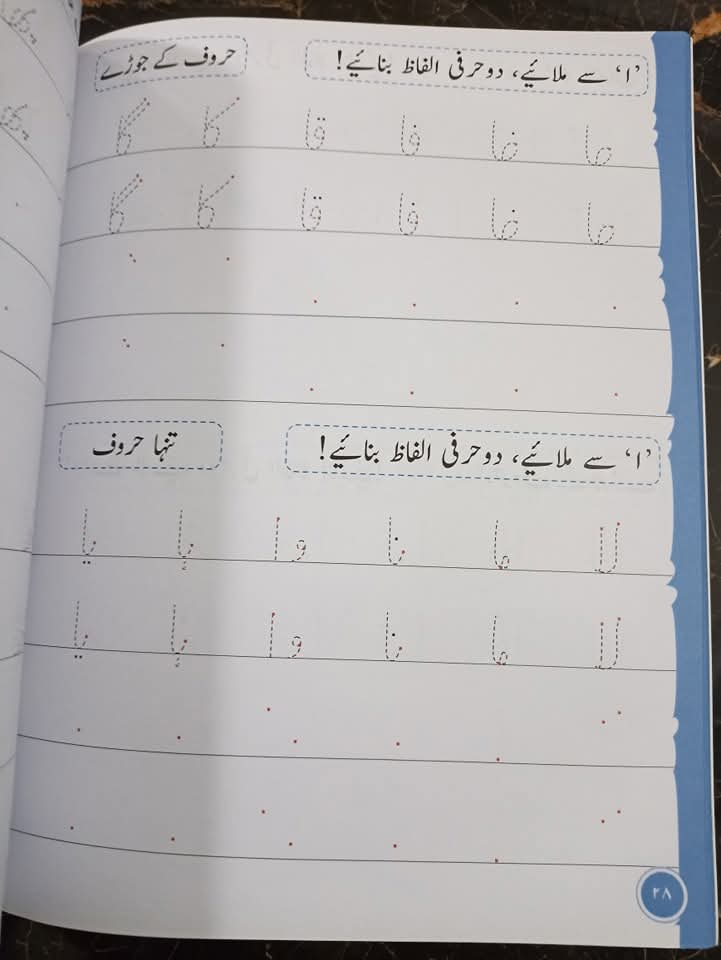 ’ا‘ سے ملائیے، دو حرفی الفاظ بنائیے! حروف کے جوڑے
صا ضا فا قا کا گا
صا ضا فا قا کا گا
’ا‘ سے ملائیے، دو حرفی الفاظ بنائیے! تنہا حروف
لا ما نا وا ہا یا
لا ما نا وا ہا یا
۲۸